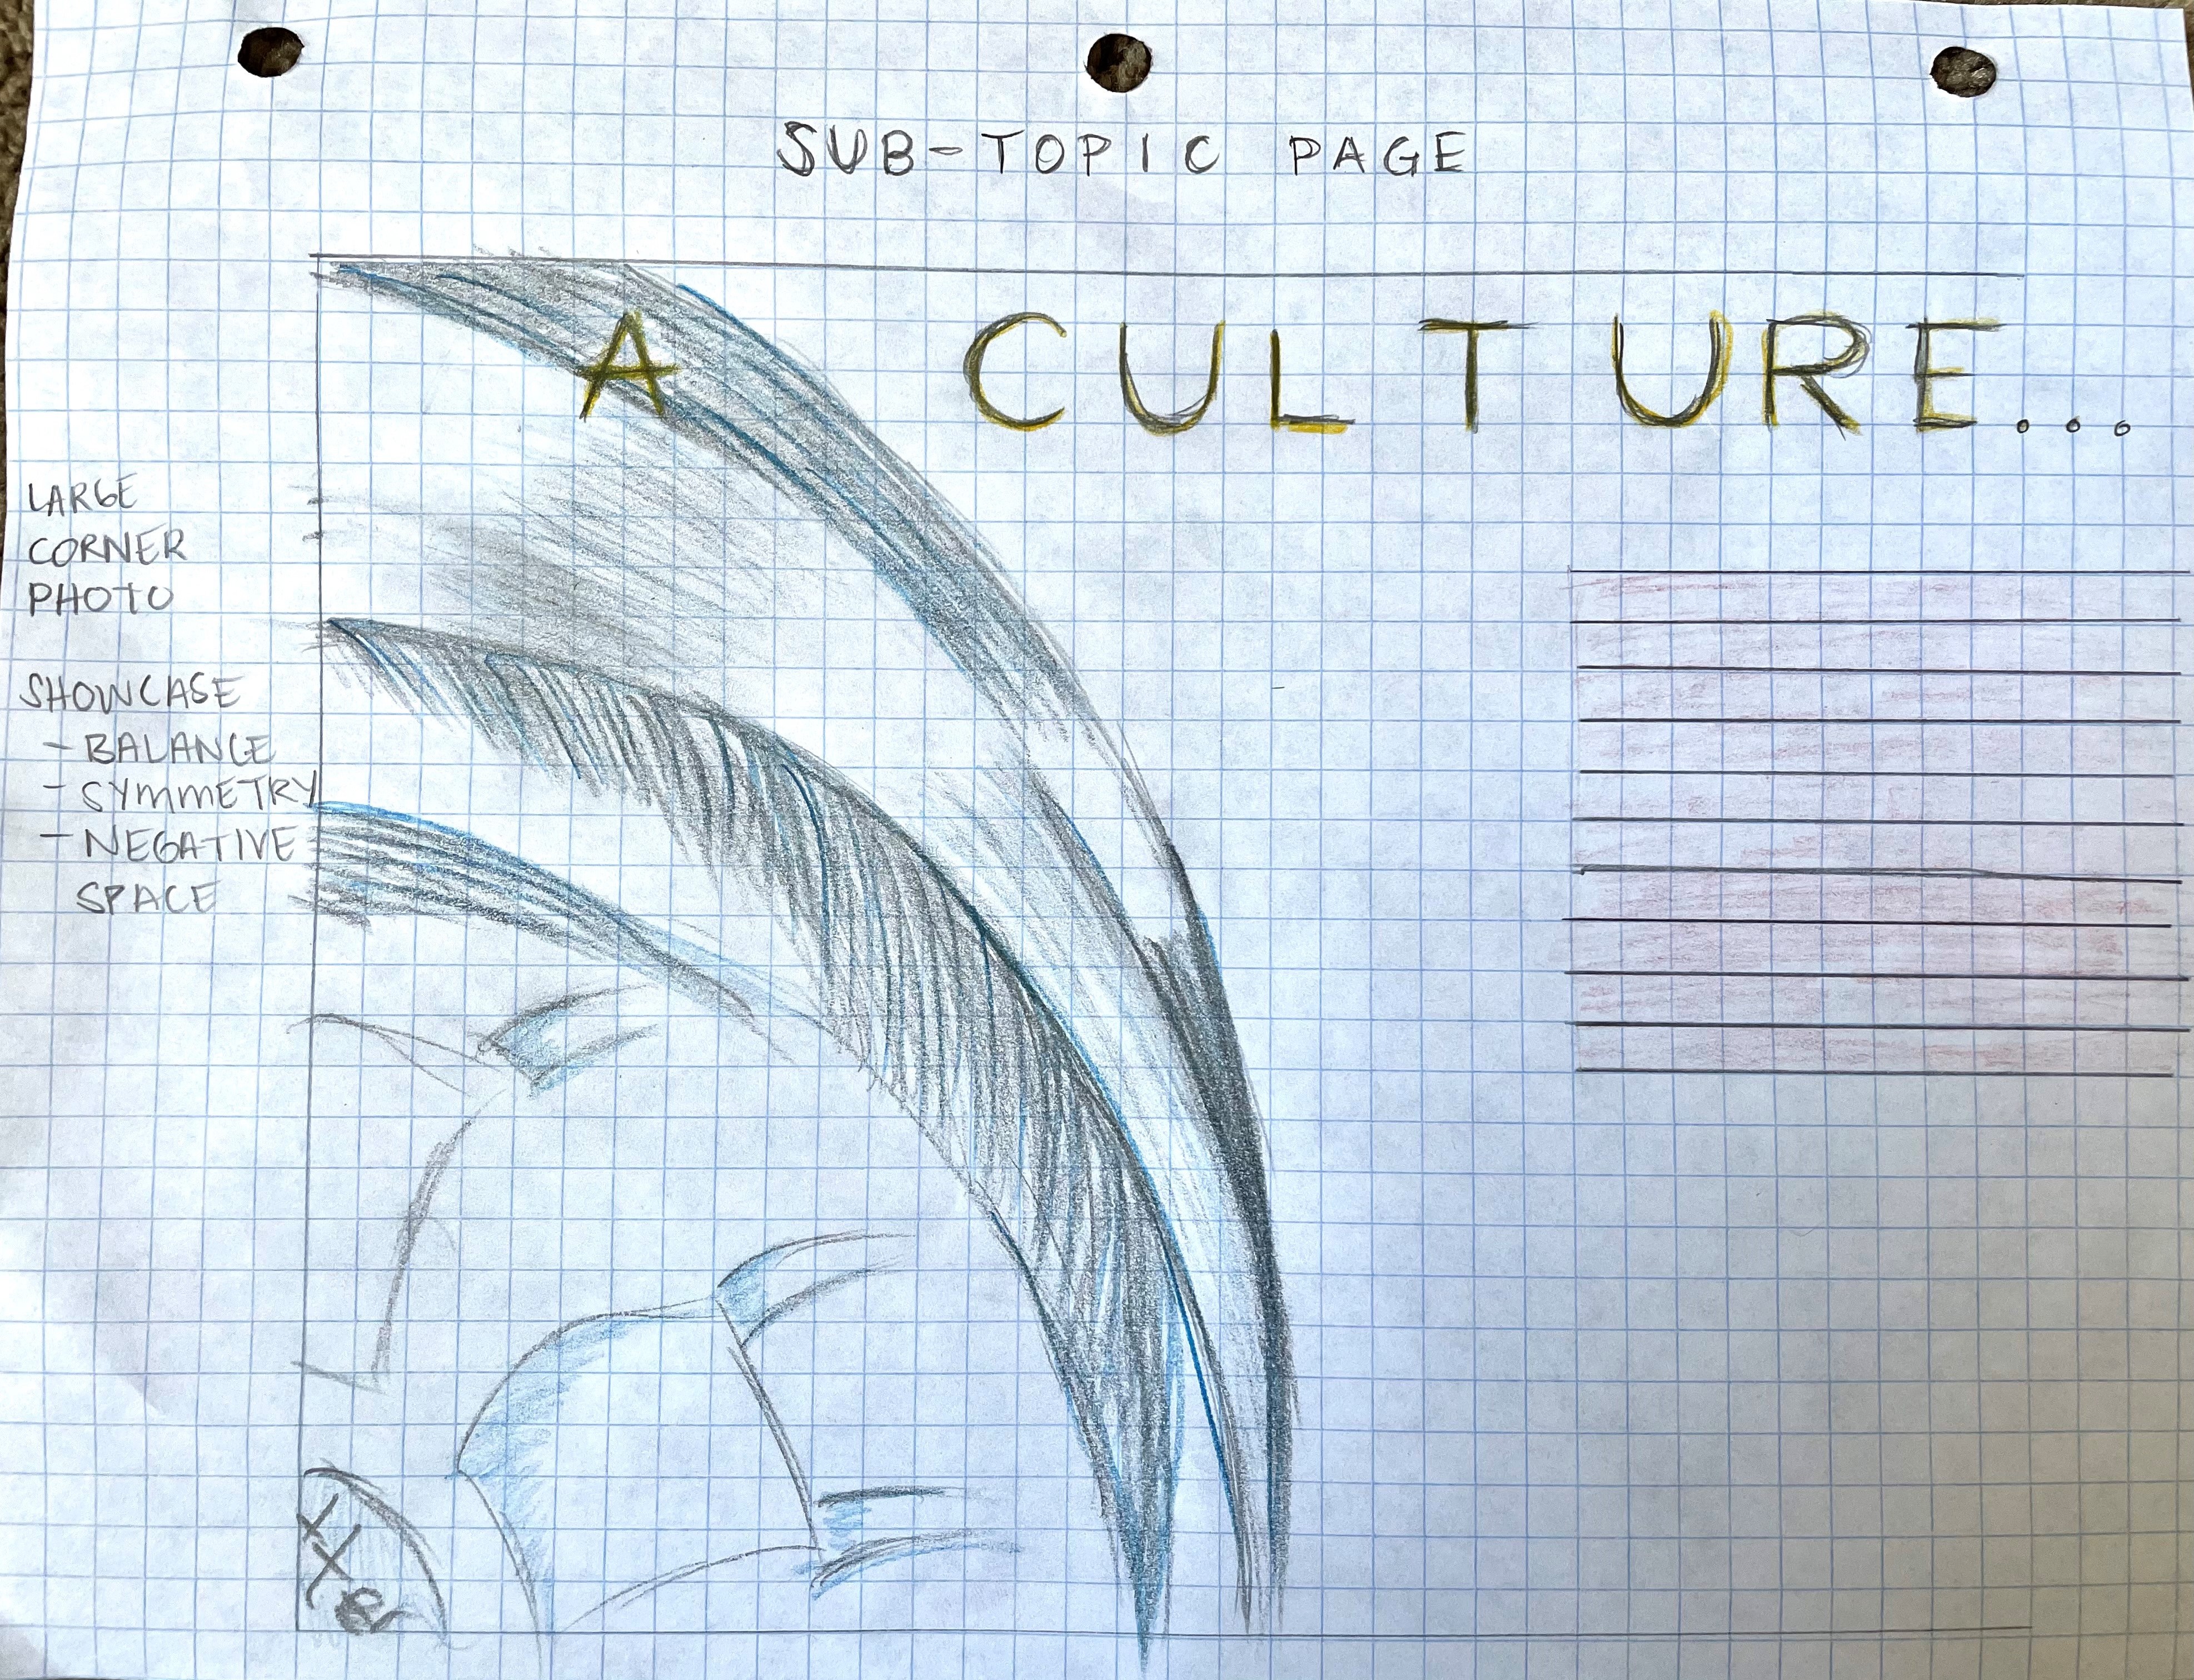 SUB-TOPIC PAGE
A CULTURE...
LARGE
CORNER
PHOTO
SHOWCASE
- BALANCE
- SYMMETRY
- NEGATIVE
SPACE